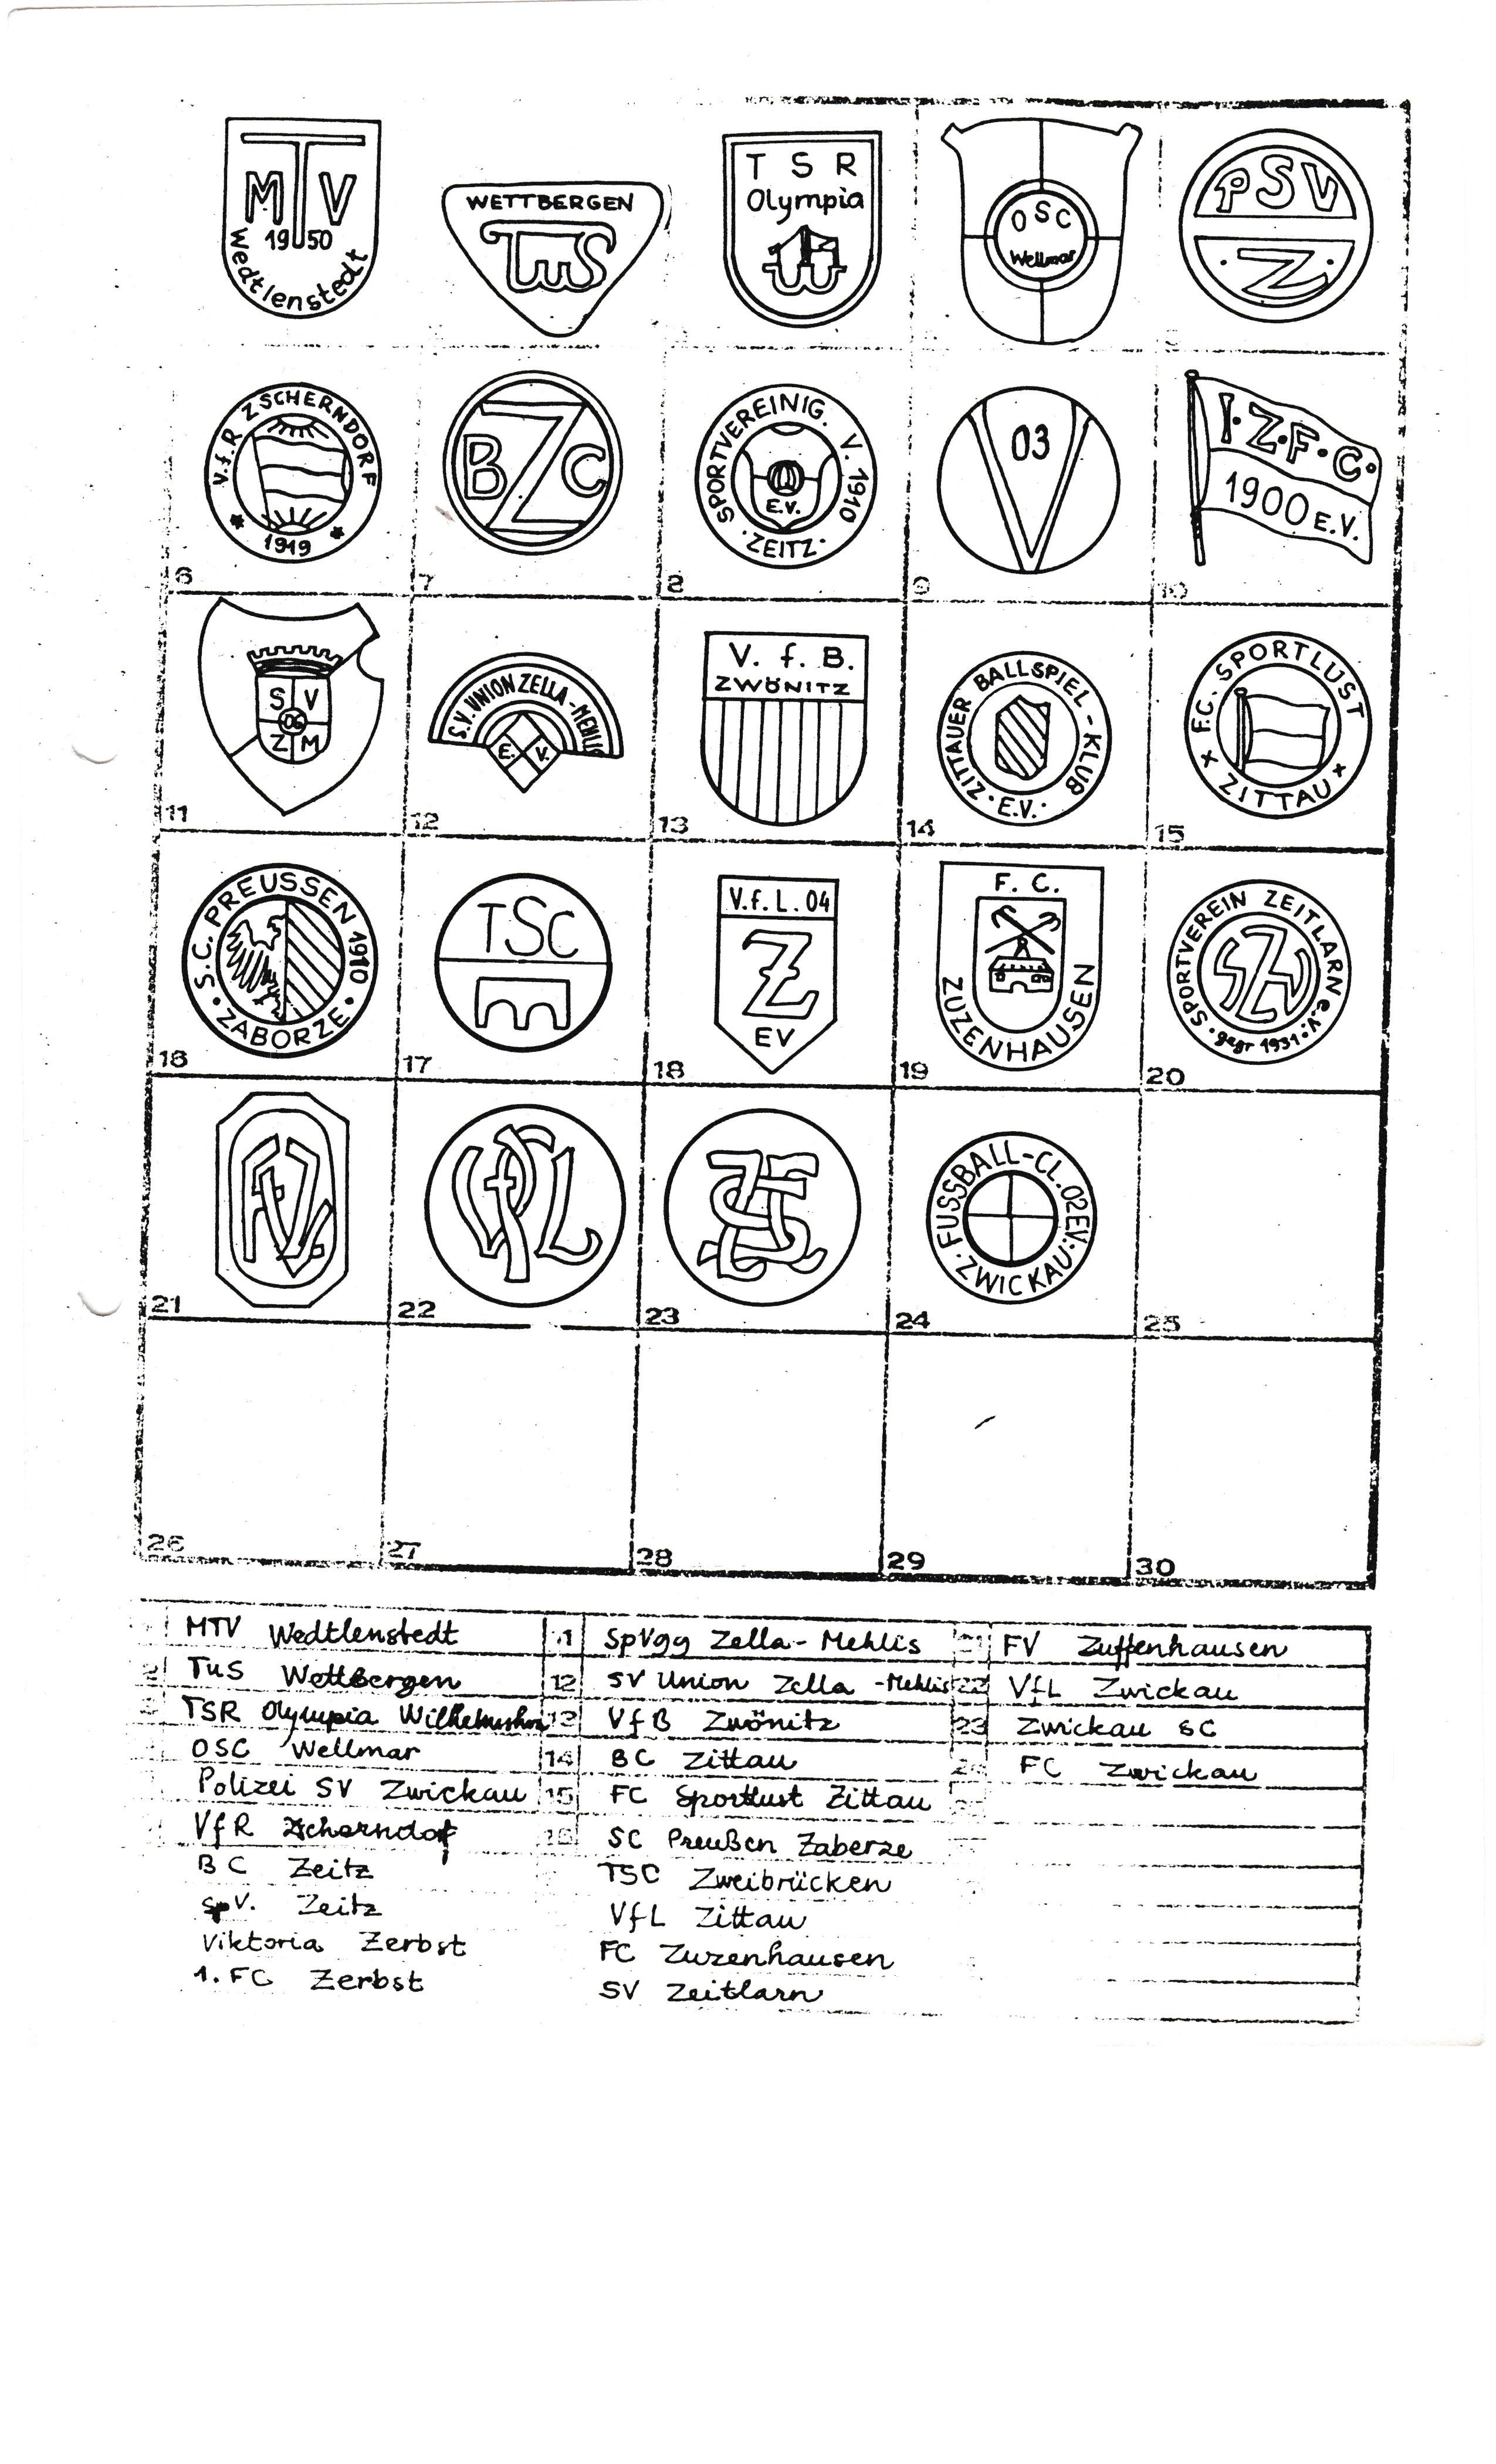 MTV
1950
Wedtlenstedt
WETTBERGEN
TuS
T S R
Olympia
OSC
Wellmar
PSV
Z
V.f.R ZSCHERNDORF
1919
6
BZC
7
SPORTVEREINIG. V. 1910
E.V.
ZEITZ
8
03
V
9
I.Z.F.C.
1900 E.V.
10
S V
06
Z M
11
S.V. UNION ZELLA-MEHLIS
E. V.
12
V. f. B.
ZWÖNITZ
13
ZITTAUER BALLSPIEL-KLUB
E.V.
14
F.C. SPORTLUST
ZITTAU
15
S.C. PREUSSEN 1910
ZABORZE
16
TSC
17
V.f.L.04
Z
EV
18
F. C.
ZUZENHAUSEN
19
SPORTVEREIN ZEITLARN e.V.
SVZ
gegr 1931
20
FVZ
21
VfL
22
ZSC
23
FUSSBALL-CL.02 EV.
ZWICKAU
24
25
26
27
28
29
30
MTV Wedtlenstedt
2 TuS Wettbergen
3 TSR Olympia
OSC Wellmar
Polizei SV Zwickau
VfR Zscherndorf
BC Zeitz
SpV. Zeitz
Viktoria Zerbst
1. FC Zerbst
11 SpVgg Zella-Mehlis
12 SV Union Zella-Mehlis
13 VfB Zwönitz
14 BC Zittau
15 FC Sportlust Zittau
16 SC Preußen Zaberze
TSC Zweibrücken
VfL Zittau
FC Zuzenhausen
SV Zeitlarn
21 FV Zuffenhausen
22 VfL Zwickau
23 Zwickau SC
24 FC Zwickau